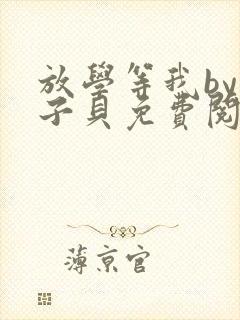 放學等我by
子貝免費閱
薄京官